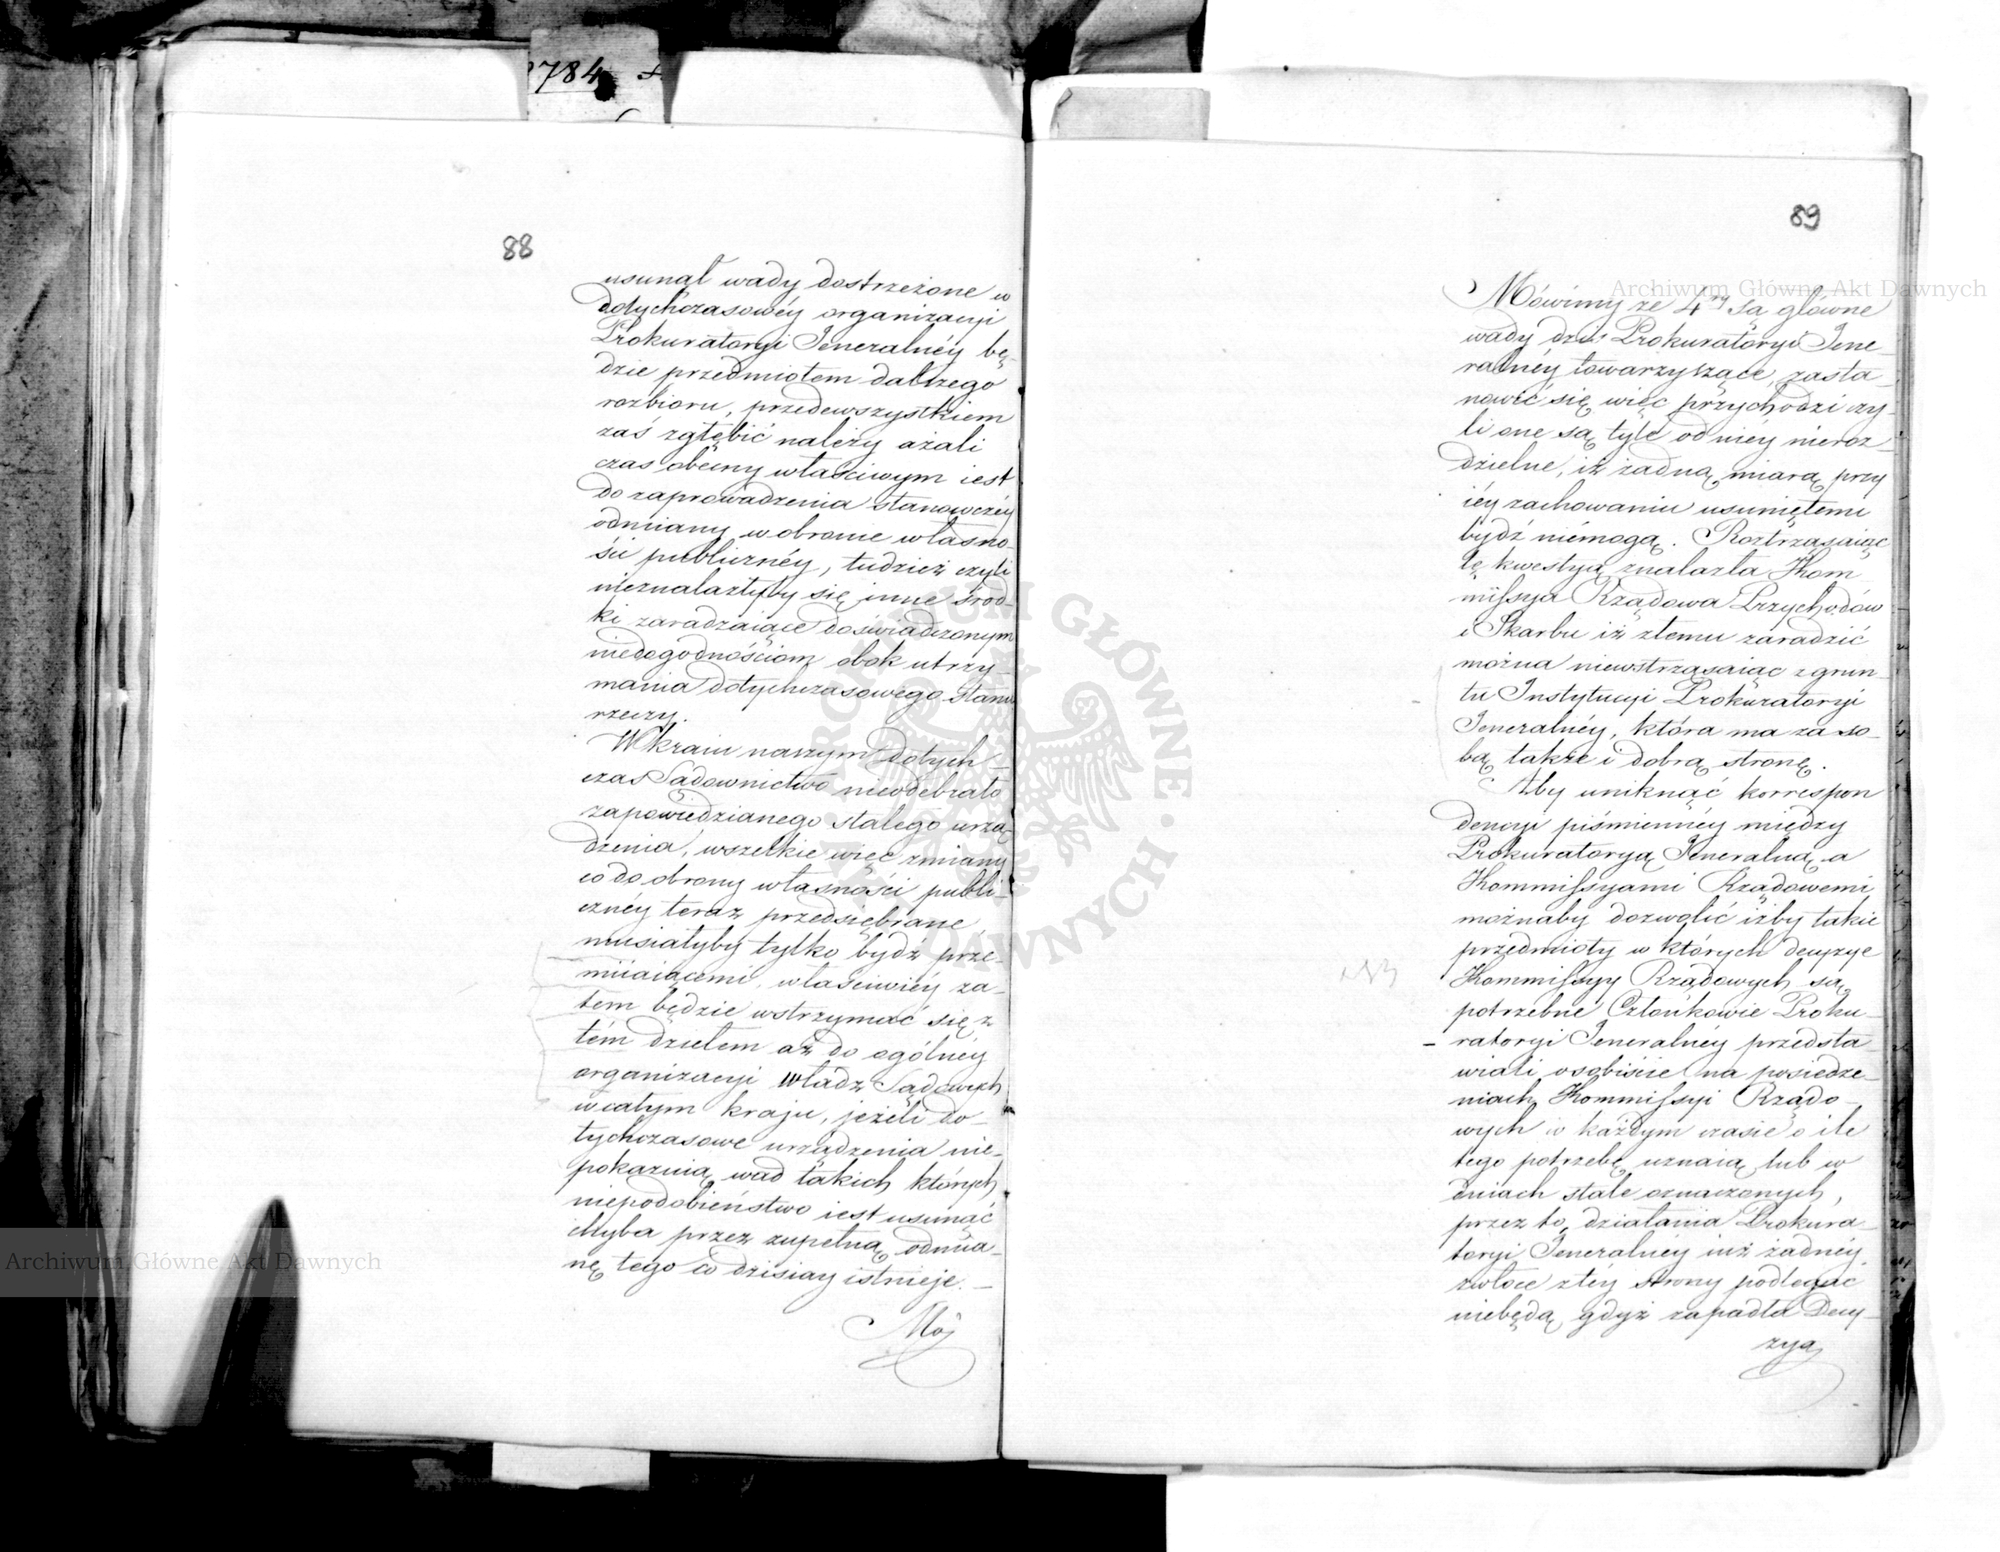 784
88
usunął wady dostrzeżone w
dotychczasowéy organizacyi
Prokuratoryi Jeneralnéy bę-
dzie przedmiotem dalszego
rozbioru, przedewszystkiem
zaś zgłębić należy ażali
czas obecny właściwym iest
do zaprowadzenia stanowczéy
odmiany w obronie własno-
ści publicznéy, tudzież czyli
nieznalazłyby się inne środ-
ki zaradzaiące doświadczonym
niedogodnościom obok utrzy-
mania dotychczasowego stanu
rzeczy.
W kraiu naszym dotych-
czas Sądownictwo nieodebrało
zapowiedzianego stałego urzą-
dzenia, wszelkie więc zmiany
co do obrony własności publi-
cznéy teraz przedsiębrane
musiałyby tylko bydź prze-
miiaiącemi, właściwiéy za-
tem będzie wstrzymać się z
tém dziełem aż do ogólnéy
organizacyi Władz Sądowych
w całym kraju, jeżeli do-
tychczasowe urządzenia nie-
pokaznią wad takich których
niepodobieństwo iest usunąć
chyba przez zupełną odmia-
nę tego co dzisiay istnieje. —
Mó
89
Mówimy że 4ry są główne
wady dziś Prokuratoryi Jene-
ralnéy towarzyszące, zasta-
nowić się więc przychodzi czy-
li one są tyle od niéy nieroz-
dzielne, iż żadną miarą przy
iéy zachowaniu usuniętemi
bydź niémogą. Roztrząsaiąc
tę kwestyą znalazła Kom-
missya Rządowa Przychodów
i Skarbu iż złemu zaradzić
można niewstrząsaiąc z grun-
tu Instytucyi Prokuratoryi
Jeneralnéy, która ma za so-
bą także i dobrą stronę.
Aby uniknąć korrespon
dencyi piśmiennéy między
Prokuratoryą Jeneralną a
Kommissyami Rządowemi
możnaby dozwolić iżby takie
przedmioty w których decyzye
Kommissyy Rządowych są
potrzebne Członkowie Proku-
ratoryi Jeneralnéy przedsta-
wiali osobiście na posiedze-
niach Kommissyi Rządo-
wych w każdym czasie o ile
tego potrzebę uznaią lub w
dniach stale oznaczonych,
przez to działania Prokura-
toryi Jeneralnéy iuż żadnéy
zwłoce z téy strony podlegać
niebędą gdyż zapadła Decy-
zya
Archiwum Główne Akt Dawnych
Archiwum Główne Akt Dawnych
ARCHIWUM GŁÓWNE AKT DAWNYCH